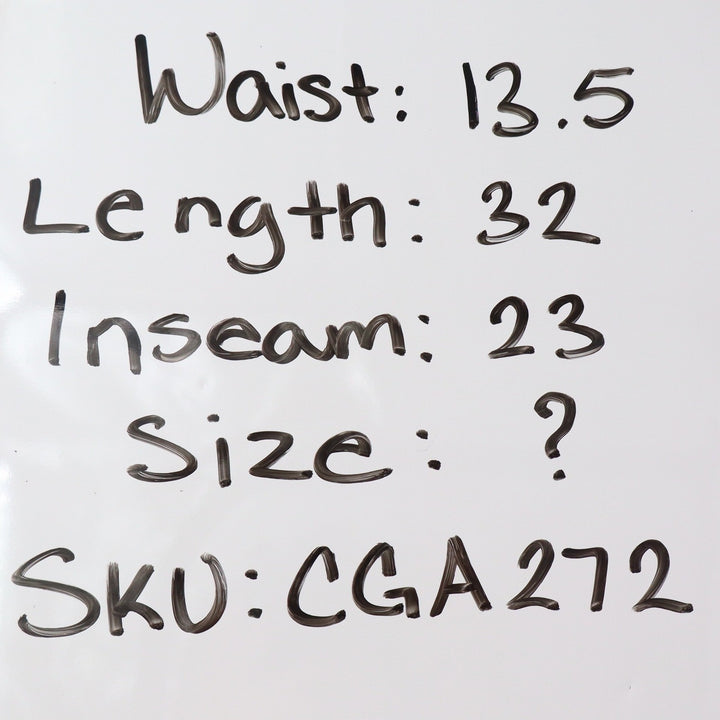 Waist: 13.5
Length: 32
Inseam: 23
Size: ?
SKU: CGA272